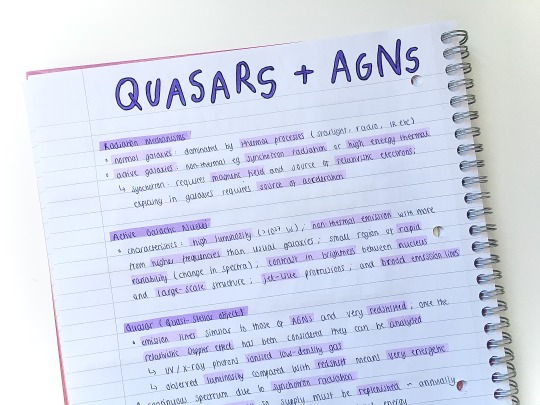 QUASARS + AGNs
Radiation Mechanisms
• normal galaxies: dominated by thermal processes (starlight, radio, IR etc)
• active galaxies: non-thermal eg synchrotron radiation or high energy thermal
↳ synchrotron: requires magnetic field and source of relativistic electrons;
in galaxies requires source of acceleration
Active Galactic Nucleus
• characteristics: high luminosity (>10³⁷ W); non thermal emission with more
from higher frequencies than usual galaxies; small region of rapid
variability (change in spectra); contrast in brightness between nucleus
and large-scale structure; jet-like protrusions; and broad emission lines
Quasar (Quasi-stellar object)
• emission lines similar to those of AGNs and very redshifted; once the
relativistic Doppler effect has been considered they can be analysed
↳ UV/X-ray photons ionised low-density gas
↳ observed luminosity compared with redshift means very energetic
• continuous spectrum due to synchrotron radiation
in supply must be replenished - annually
energy